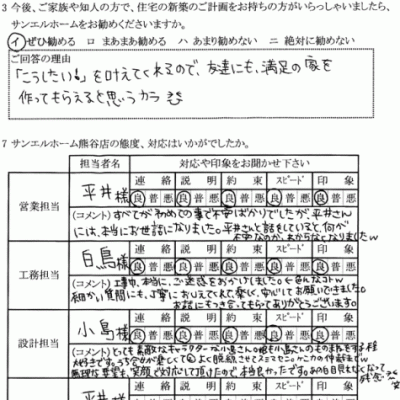 3 今後、ご家族や知人の方で、住宅の新築のご計画をお持ちの方がいらっしゃいましたら、
サンエルホームをお勧めくださいますか。
イ ぜひ勧める ロ まあまあ勧める ハ あまり勧めない ニ 絶対に勧めない
ご回答の理由
「こうしたい!」を叶えてくれるので、友達にも、満足の家を
作ってもらえると思うカラ
7 サンエルホーム熊谷店の態度、対応はいかがでしたか。
担当者名 対応や印象をお聞かせ下さい
連絡 説明 約束 スピード 印象
営業担当 平井様 良 普 悪 良 普 悪 良 普 悪 良 普 悪 良 普 悪
(コメント) すべてが初めての事で不安ばかりでしたが、平井さん
には、本当にお世話になりました。平井さんと話をしていると、何が
不安なのか、わからなくなりましたw
連絡 説明 約束 スピード 印象
工務担当 白鳥様 良 普 悪 良 普 悪 良 普 悪 良 普 悪 良 普 悪
(コメント) 工事中、本当に、ご迷惑をおかけしました。
細かい質問にも、丁寧におしえてくれて、楽しく、安心してお願いできました。
お話につき合ってもらってありがとうございます。
連絡 説明 約束 スピード 印象
設計担当 小島様 良 普 悪 良 普 悪 良 普 悪 良 普 悪 良 普 悪
(コメント) とっても素敵なキャラクターな小島さん。
大好きです。
無理な要望も、笑顔で対応して頂けたので、本当良かったです。
連絡 説明 約束 スピード 印象
平井様